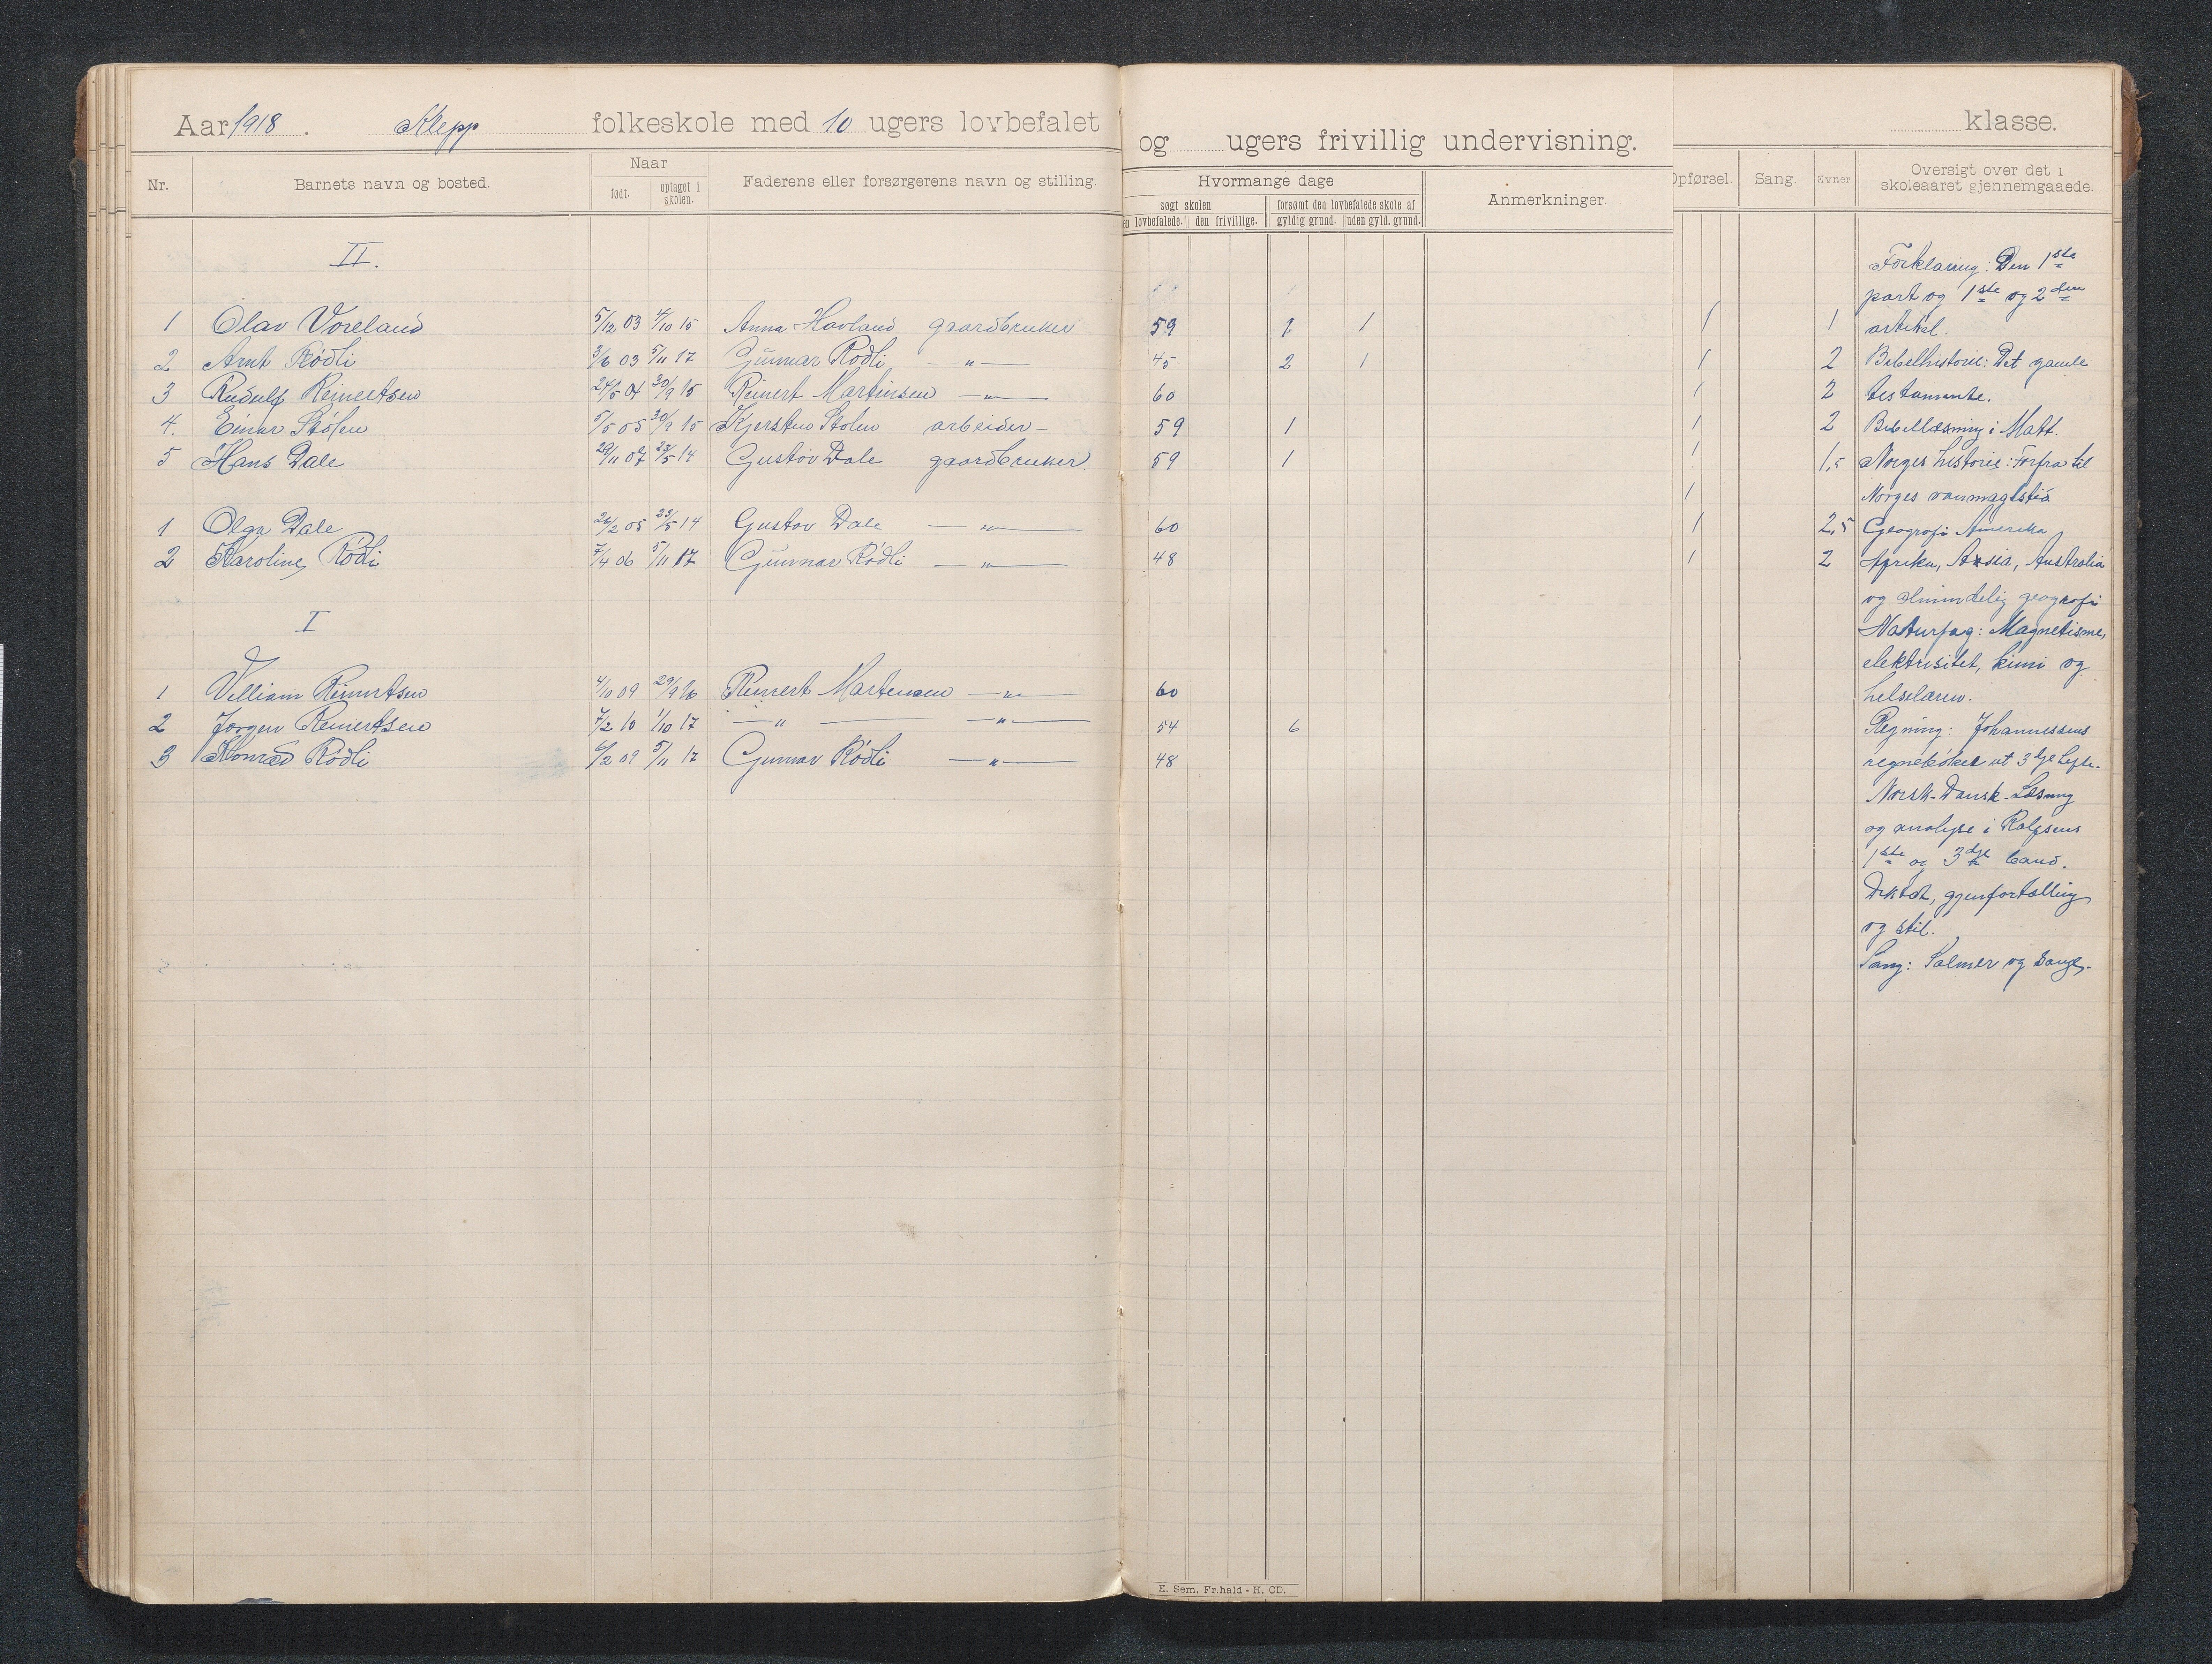 Aar 1918. Klepp folkeskole med 10 ugers lovbefalet og ugers frivillig undervisning. klasse.
Nr. Barnets navn og bosted. Naar født. optaget i skolen. Faderens eller forsørgerens navn og stilling. Hvormange dage søgt skolen lovbefalede. den frivillige. forsømt den lovbefalede skole af gyldig grund. uden gyld. grund. Anmerkninger. Opførsel. Sang. Evner Oversigt over det i skoleaaret gjennemgaaede.
II.
1 Olav Voreland 5/12 03 4/10 15 Anna Hovland gaardbruker 59 1 1 1 1
2 Arnt Rödli 3/6 03 5/11 17 Gunnar Rödli —"— 45 2 1 1 2
3 Rudulf Reinertsen 24/5 04 30/9 15 Reinert Martinsen —"— 60 1 2
4. Einar Stölen 5/5 05 30/9 15 Kjersten Stolen arbeider 59 1 1 2
5 Hans Dale 29/11 07 23/5 14 Gustov Dale gaardbruker 59 1 1 1,5
1
1 Olga Dale 26/2 05 23/5 14 Gustov Dale —"— 60 1 2,5
2 Karoline Rödli 7/4 06 5/11 17 Gunnar Rödli —"— 48 1 2
I
1 Villiam Reinertsen 4/10 09 29/9 16 Reinert Martensen —"— 60
2 Jorgen Reinertsen 7/2 10 1/10 17 —"— —"— 54 6
3 Konrad Rödli 6/2 09 5/11 17 Gunnar Rödli —"— 48
Forklaring: Den 1ste
part og 1ste og 2den
artikel.
Bibelhistorie: Det gamle
testamente.
Bibellæsning i Matt.
Norges historie: Forfra til
Norges vanmagtstid
Geografi Amerika
Afrika, Asia, Australia
og almindelig geografi
Naturfag: Magnetisme,
elektrisitet, kimi og
helselæren.
Regning: Johannessens
regneböker ut 3dje hefte.
Norsk-Dansk-Læsning
og analyse i Rolfsens
1ste og 3dje band.
Diktat, gjenfortælling
og stil.
Sang: Salmer og sange.
E. Sem. Fr.hald - H. CD.